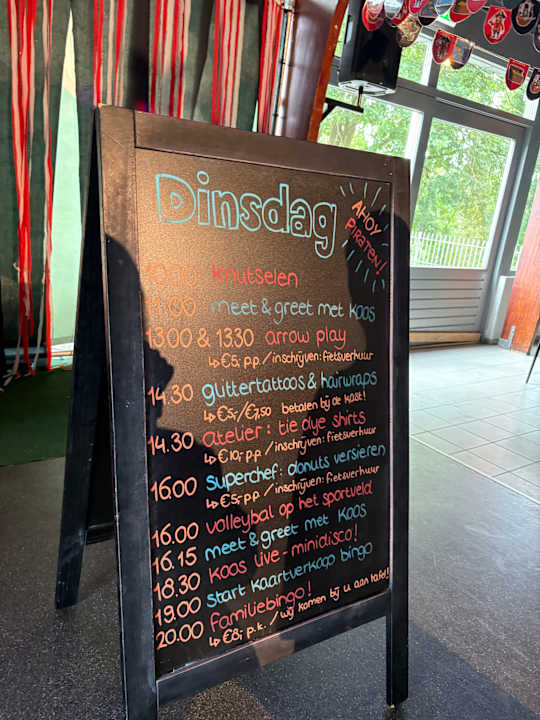 Dinsdag
AHOY
PIRATEN!
10.00 knutselen
11.00 meet & greet met koos
13.00 & 13.30 arrow play
↳ €5,- p.p. / inschrijven: fietsverhuur
14.30 glittertattoos & hairwraps
↳ €5,-/€7,50 betalen bij de kast!
14.30 atelier: tie dye shirts
↳ €10,- p.p. / inschrijven: fietsverhuur
16.00 superchef: donuts versieren
↳ €5,- p.p. / inschrijven: fietsverhuur
16.00 volleybal op het sportveld
16.15 meet & greet met koos
18.30 koos live - minidisco!
19.00 start kaartverkoop bingo
20.00 familiebingo!
↳ €8,- p.k. / wij komen bij u aan tafel!